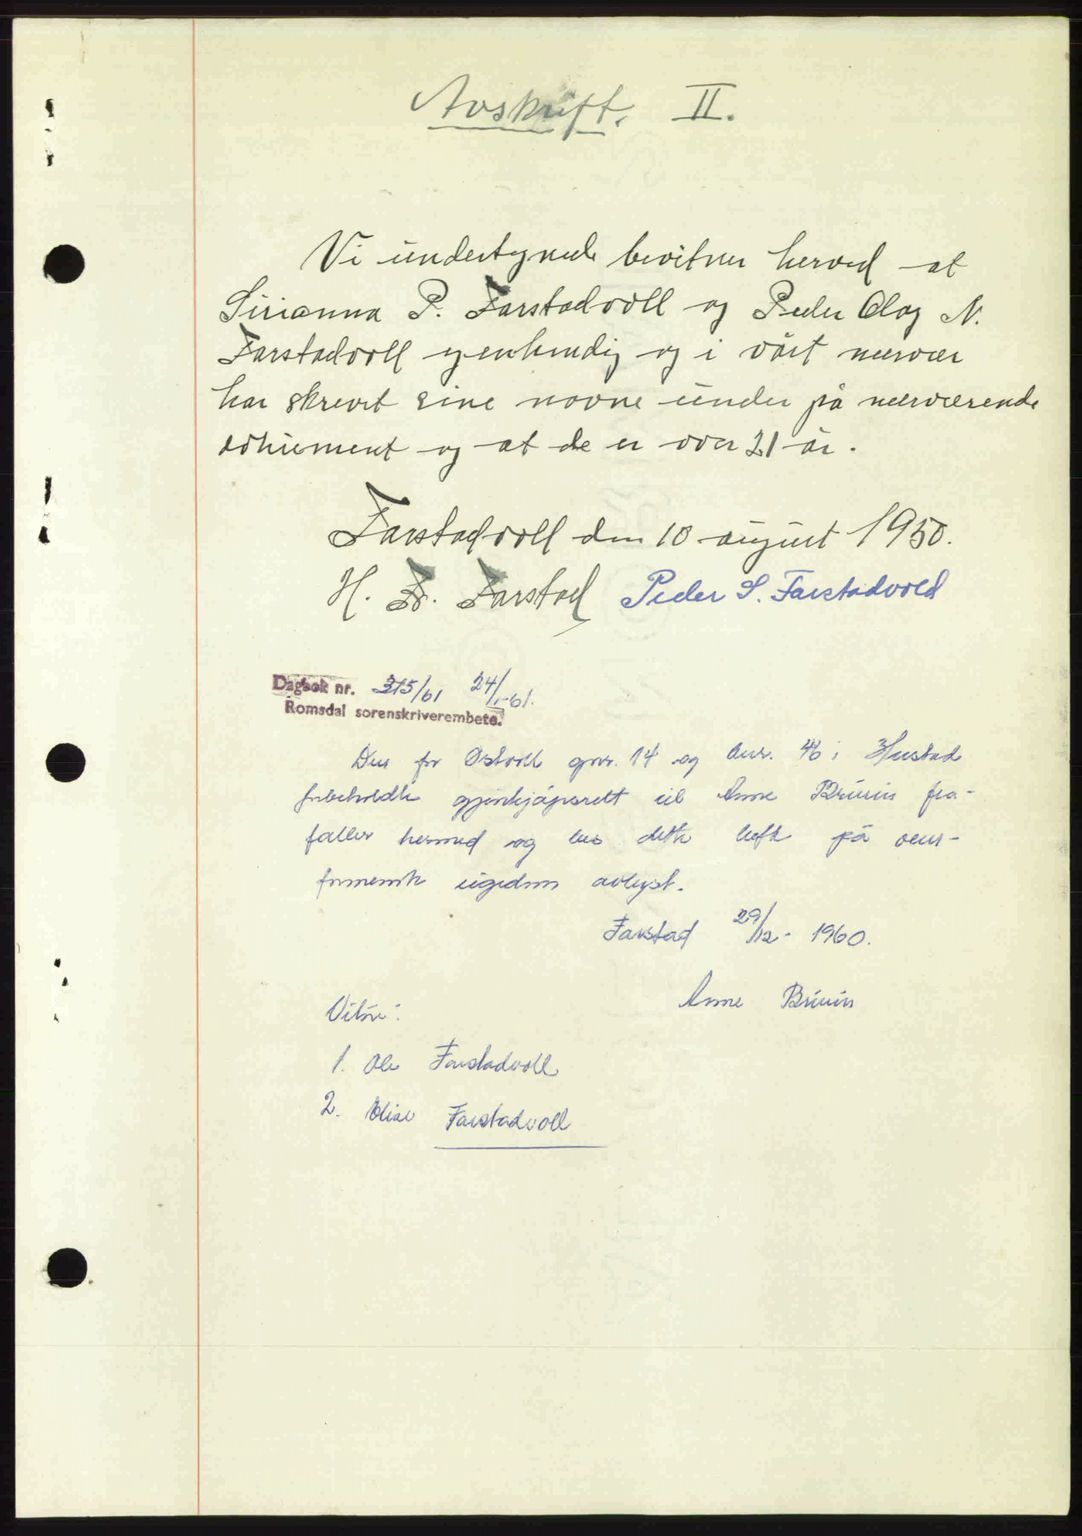 Avskrift. II.
Vi undertegnede bevitner herved at
Sirianna P. Farstadvoll og Peder Olag N.
Farstadvoll egenhendig og i vårt nærvær
har skrevet sine navne under på nærværende
dokument og at de er over 21 år.
Farstadvoll den 10 august 1950.
H. Farstad Peder S. Farstadvold
Dagbok nr. 315/61 24/1-61.
Romsdal sorenskriverembete.
Den for Østvoll gnr. 14 og bnr. 46 i Hustad
forbeholdte gjenkjøpsrett til Anne Bruun fra-
faller hermed og bes dette heft på oven-
formente eigedom avlyst.
Farstad 29/12- 1960.
Anne Bruun
Vitne:
1. Ole Farstadvoll
2. Elise Farstadvoll